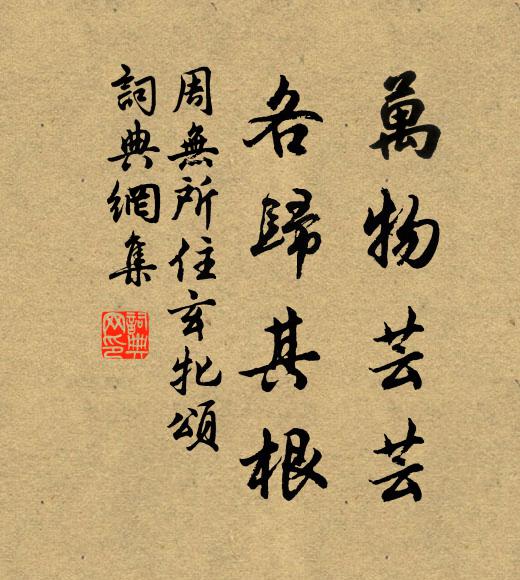 萬物芸芸
各歸其根
周無所住玄牝頌
詞典網集
詞典網印